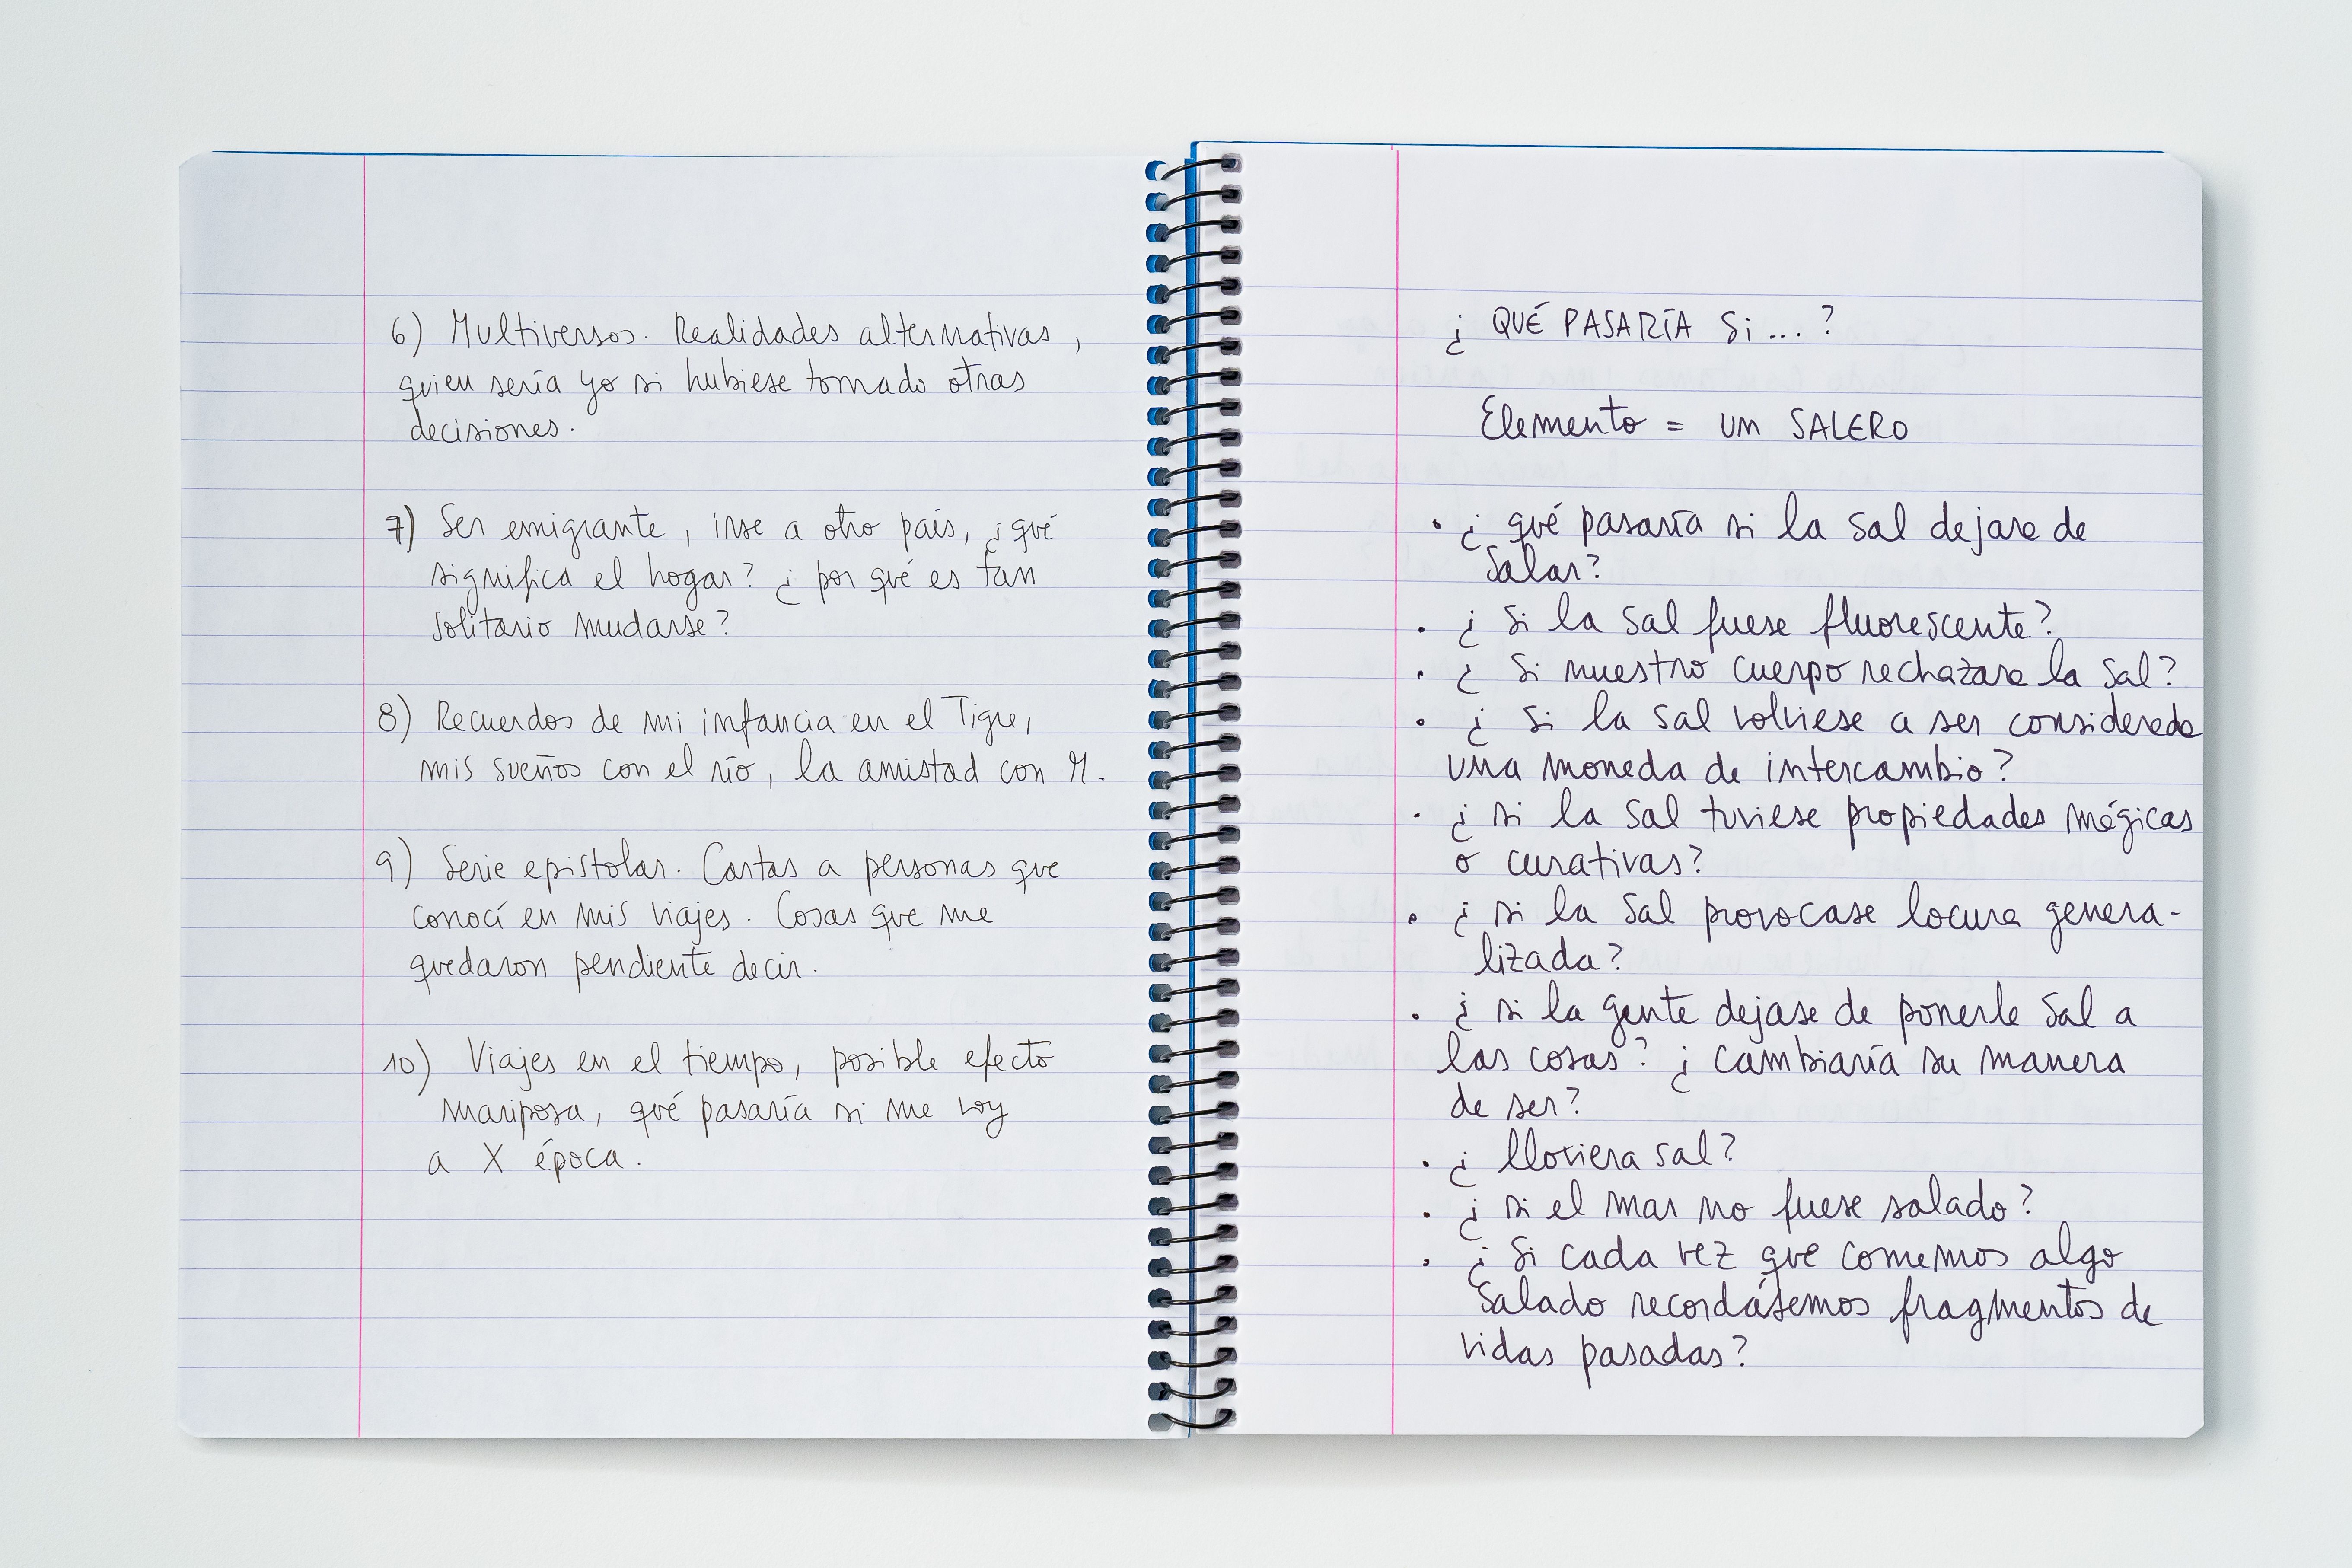 6) Multiversos. Realidades alternativas,
quien sería yo si hubiese tomado otras
decisiones.
7) Ser emigrante, irse a otro país, ¿qué
significa el hogar? ¿por qué es tan
solitario mudarse?
8) Recuerdos de mi infancia en el Tigre,
mis sueños con el río, la amistad con M.
9) Serie epistolar. Cartas a personas que
conocí en mis viajes. Cosas que me
quedaron pendiente decir.
10) Viajes en el tiempo, posible efecto
mariposa, qué pasaría si me voy
a X época.
¿QUÉ PASARÍA Si...?
Elemento = un SALERO
• ¿qué pasaría si la sal dejara de
salar?
• ¿si la sal fuese fluorescente?
• ¿si nuestro cuerpo rechazara la sal?
• ¿si la sal volviese a ser considerada
una moneda de intercambio?
• ¿si la sal tuviese propiedades mágicas
o curativas?
• ¿si la sal provocase locura genera-
lizada?
• ¿si la gente dejase de ponerle sal a
las cosas? ¿cambiaría su manera
de ser?
• ¿lloviera sal?
• ¿si el mar no fuese salado?
• ¿si cada vez que comemos algo
salado recordásemos fragmentos de
vidas pasadas?